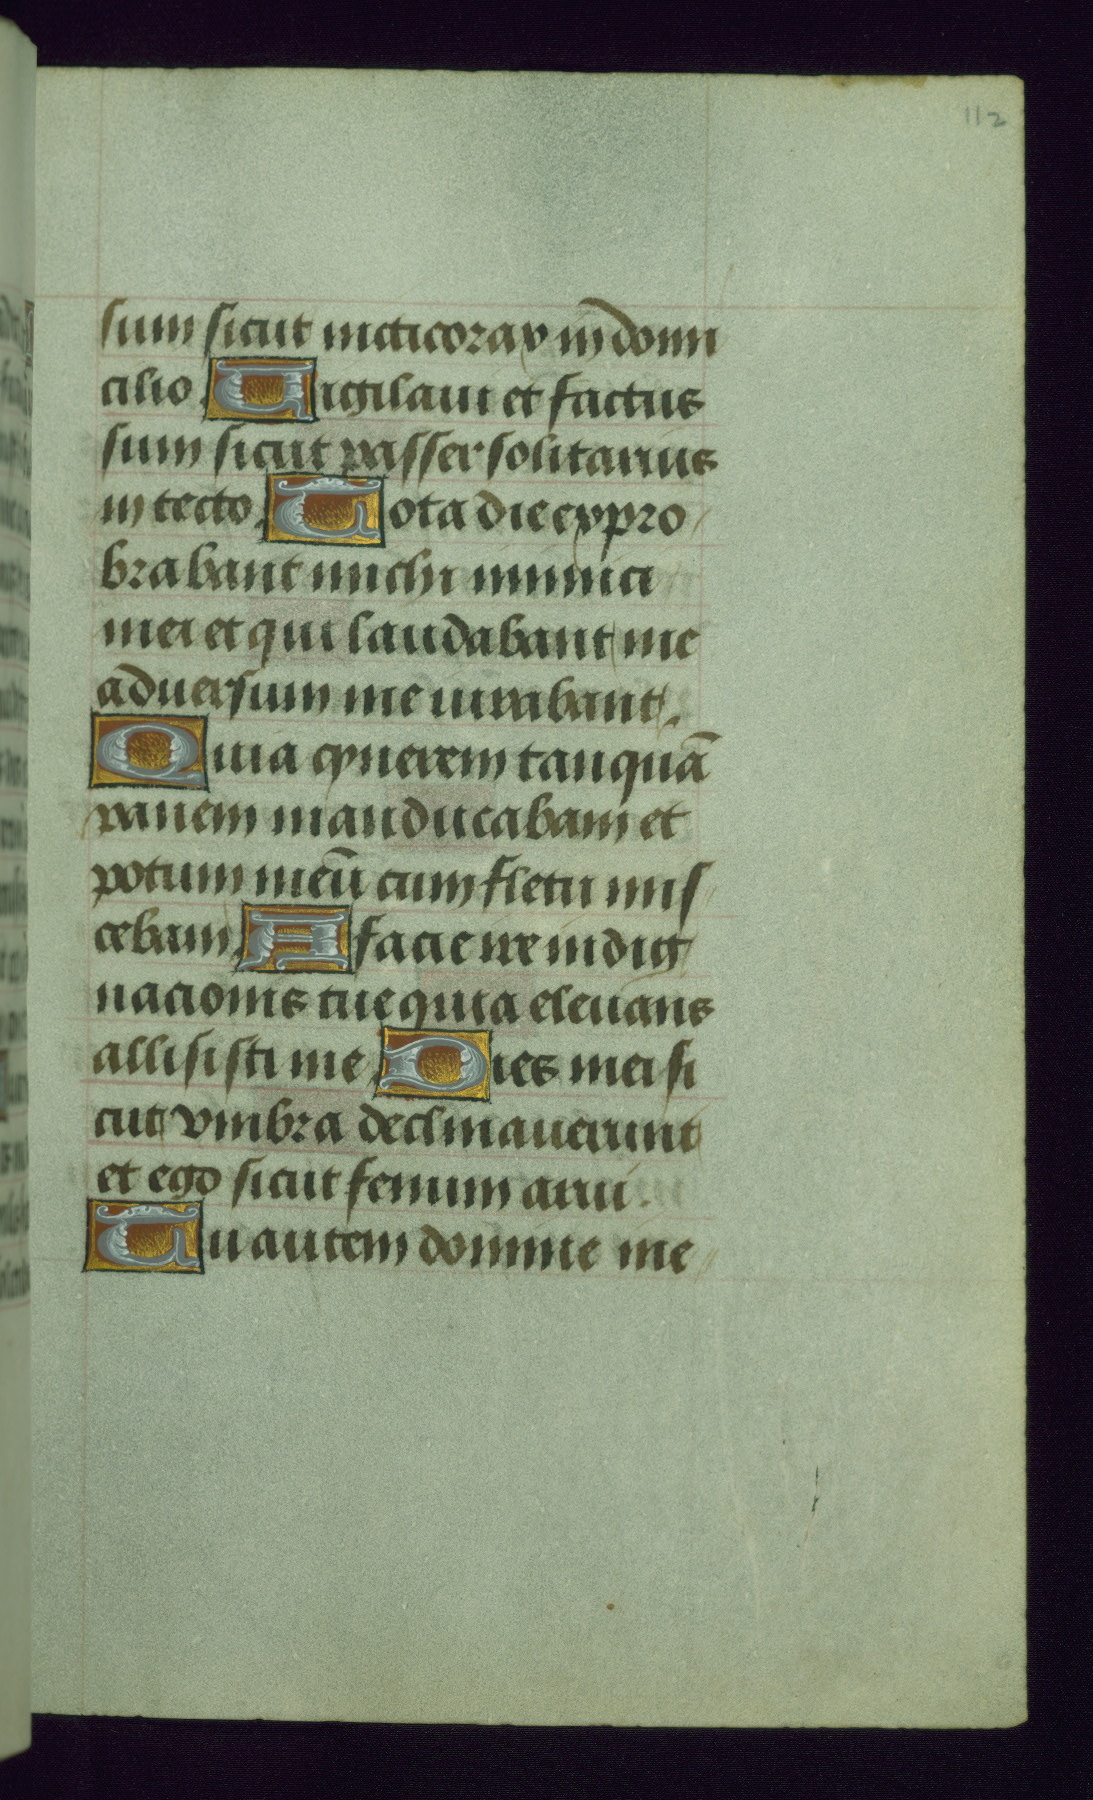 112
sum sicut nicticorax in domi
cilio. Vigilaui et factus
sum sicut passer solitarius
in tecto. Tota die expro
brabant michi inimici
mei et qui laudabant me
aduersum me iurabant.
Quia cynerem tanquã
panem manducabam et
potum meũ cum fletu mis
cebam. A facie ire indig
nacionis tue quia eleuans
allisisti me. Dies mei si
cut vmbra declinauerunt
et ego sicut fenum arui.
Tu autem domine me